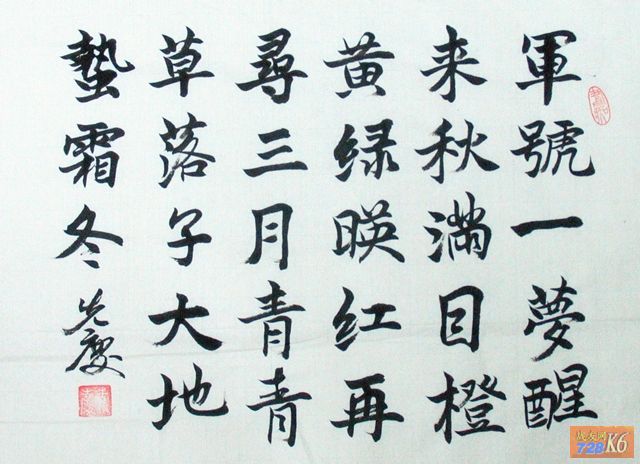 軍號一夢醒
来秋滿目橙
黄绿暎红再
尋三月青青
草落子大地
蟄霜冬 先慶
战友网
728K6